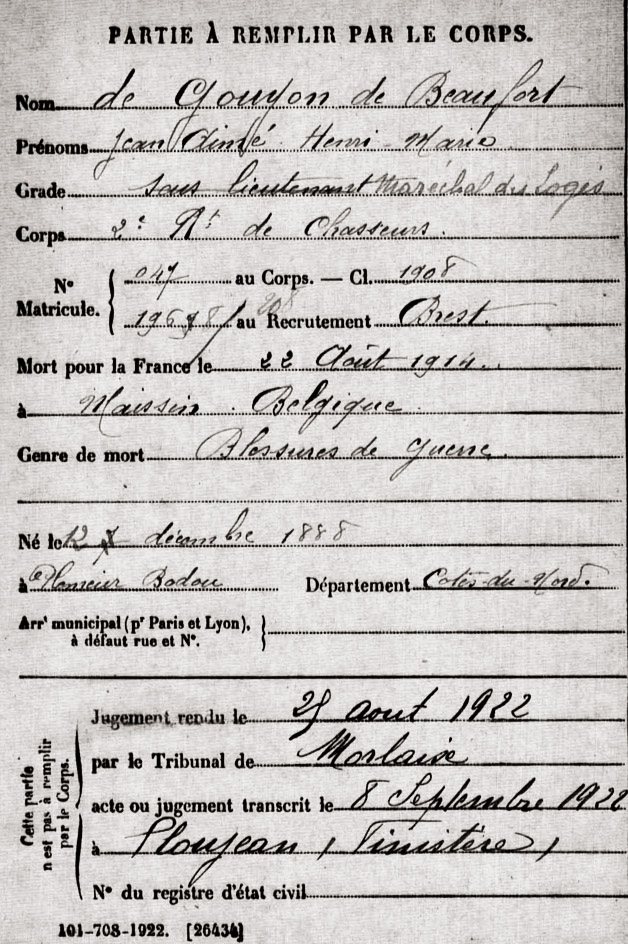 PARTIE À REMPLIR PAR LE CORPS.
Nom de Gouyon de Beaufort
Prénoms Jean Aimé Henri-Marie
Grade sous lieutenant Maréchal des Logis
Corps 2e Rt de Chasseurs.
N° Matricule. { 047 au Corps. — Cl. 1908
au Recrutement Brest.
Mort pour la France le 22 Août 1914.
à Maissin . Belgique.
Genre de mort Blessures de guerre.
Né le 12 décembre 1888
à Plemeur Bodou Département Côtes-du-Nord.
Arrt municipal (pr Paris et Lyon), à défaut rue et N°. }
Cette partie n'est pas à remplir par le Corps.
Jugement rendu le 25 aout 1922
par le Tribunal de Morlaix
acte ou jugement transcrit le 8 Septembre 1922
à Ploujean (Finistère)
N° du registre d'état civil
101-708-1922. [26434]